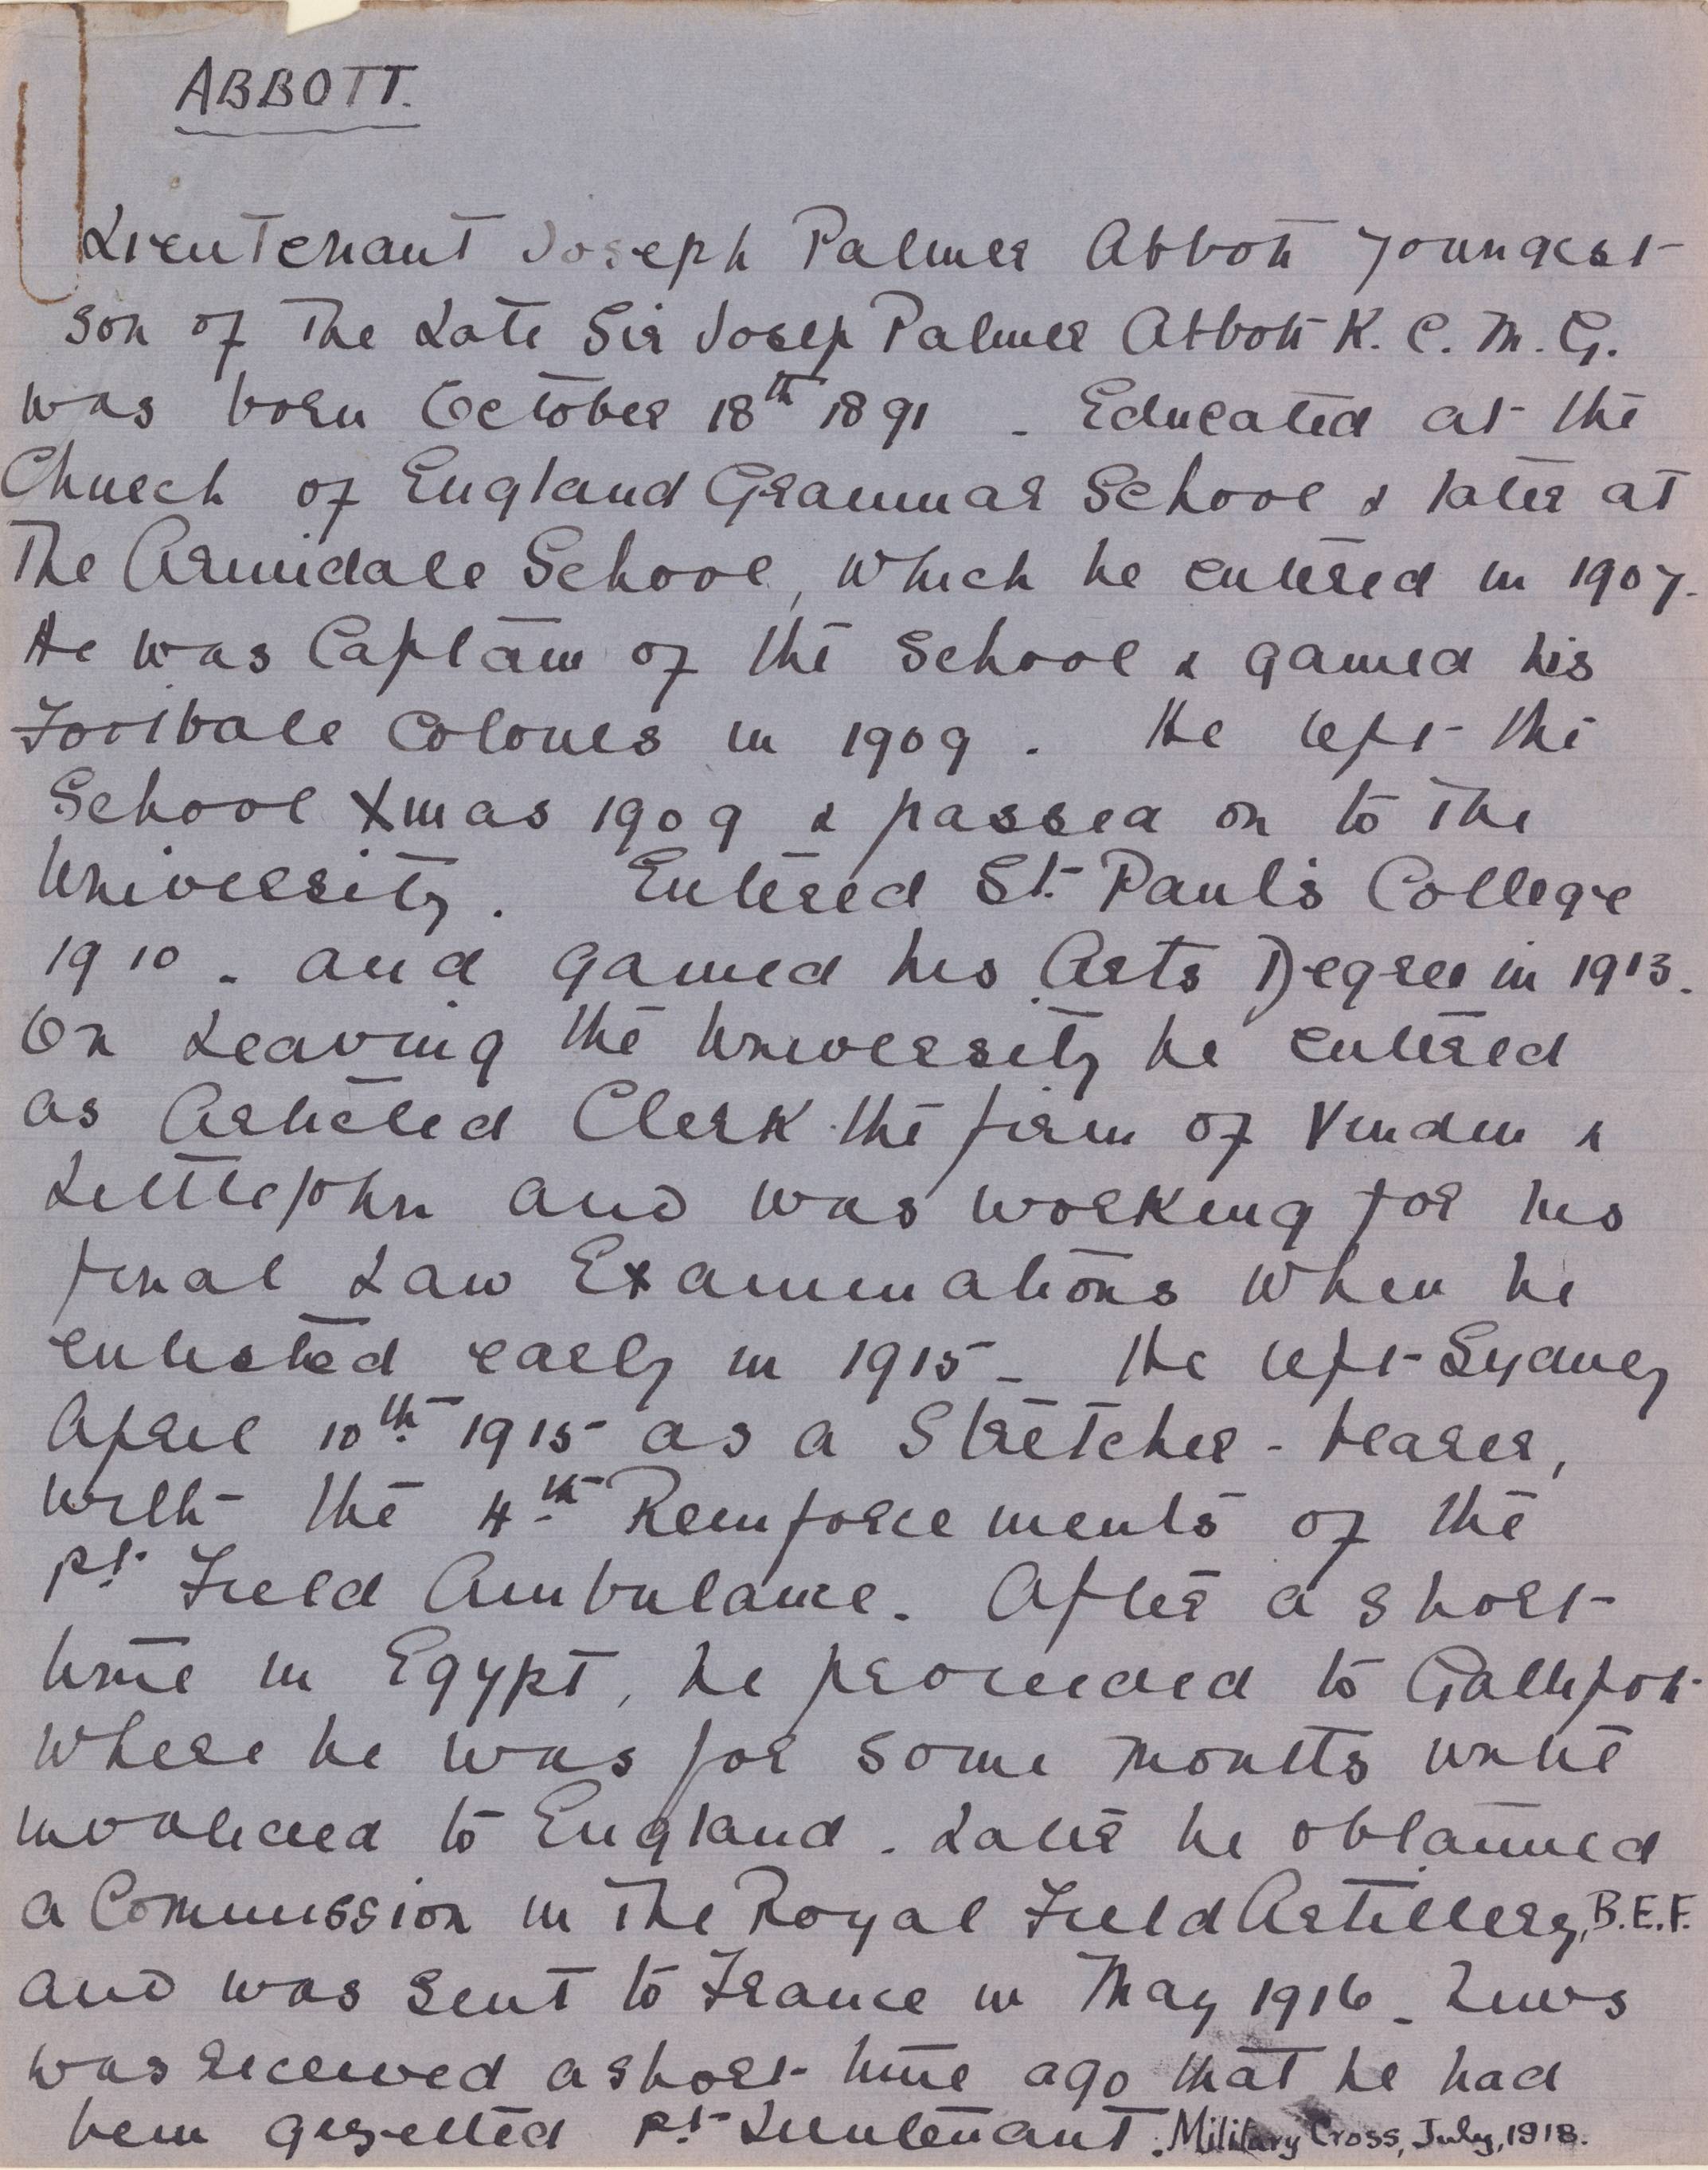 ABBOTT.
Lieutenant Joseph Palmer Abbott youngest
son of the Late Sir Josep Palmer Abbott K.C.M.G.
was born October 18th 1891 - Educated at the
Church of England Grammar School & later at
The Armidale School, which he entered in 1907.
He was Captain of the School & gained his
Football Colours in 1909. He left the
School Xmas 1909 & passed on to the
University. Entered St. Paul's College
1910. and gained his Arts Degree in 1913.
On Leaving the University he entered
as Articled Clerk the firm of Vindin &
Littlejohn and was working for his
final Law Examinations when he
enlisted early in 1915 - He left Sydney
April 10th 1915 as a Stretcher-bearer,
with the 4th Reinforcements of the
1st Field Ambulance. After a short
time in Egypt, he proceeded to Gallipoli
where he was for some months until
invalided to England. Later he obtained
a Commission in the Royal Field Artillery, B.E.F.
and was sent to France in May 1916 - News
was received a short time ago that he had
been gazetted 1st Lieutenant. Military Cross, July, 1918.